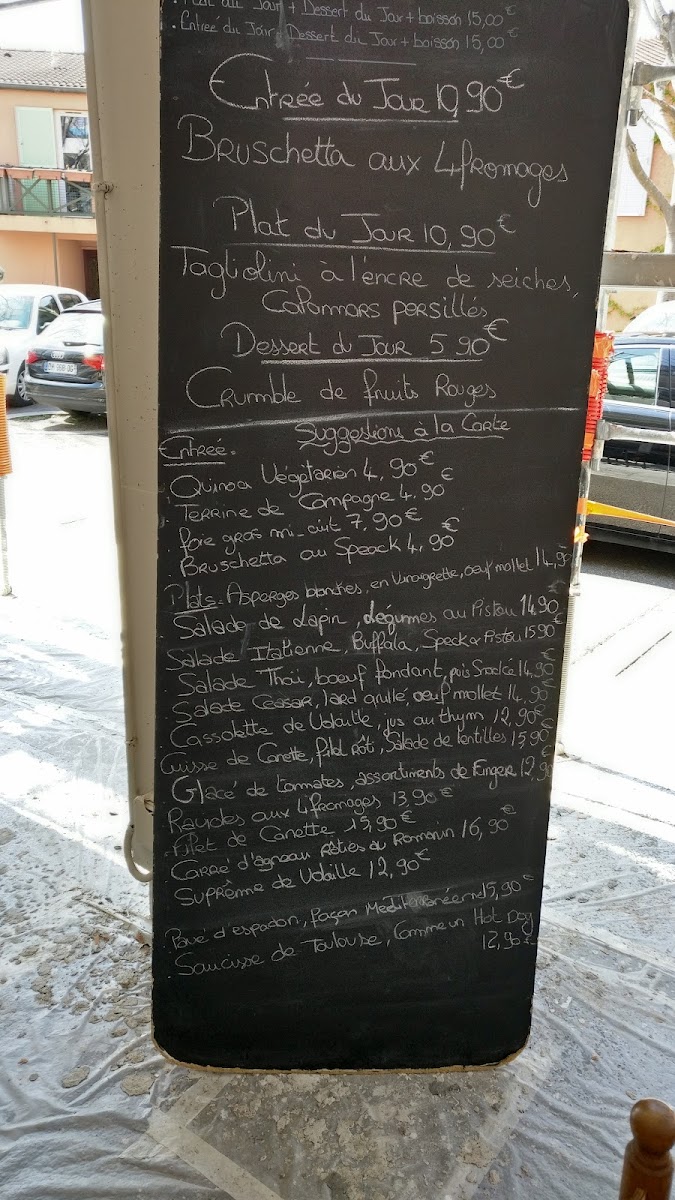 Plat du Jour + Dessert du Jour + boisson 15,00€
Entrée du Jour + Dessert du Jour + boisson 15,00€
Entrée du Jour 10,90€
Bruschetta aux 4 fromages
Plat du Jour 10,90€
Tagliolini à l'encre de seiches,
Calammars persillés
Dessert du Jour 5.90€
Crumble de fruits Rouges
Suggestions à la Carte
Entrée.
. Quinoa Végétarien 4,90€
. Terrine de Campagne 4.90€
. foie gras mi-cuit 7,90€
. Bruschetta au Speack 4,90€
Plats. Asperges blanches, en Vinaigrette, oeuf mollet 14,90€
Salade de Lapin, légumes au Pistou 14,90€
. Salade Italienne, Buffala, Speck & Pistou 15,90€
. Salade Thaï, boeuf fondant, pois Snocké 14,90€
. Salade Ceasar, lard grillé, oeuf mollet 14,90€
. Cassolette de Volaille, jus au thym 12,90€
. Cuisse de Canette, filet Rôti, Salade de lentilles 15,90€
. Glacé de tomates, assortiments de Finger 12,90
. Ravioles aux 4 fromages 13,90€
. Filet de Canette 15,90€
. Carré d'agneau Rôties au Romarin 16,90€
. Suprême de Volaille 12,90€
. Pavé d'espadon, façon Mediterranéenne 15,90€
. Saucisse de Toulouse, Comme un Hot Dog
12,90€